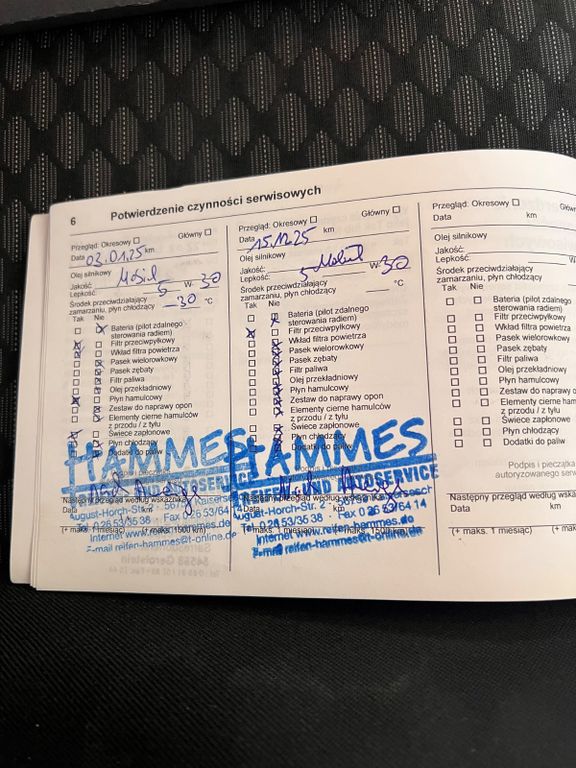 6 Potwierdzenie czynności serwisowych
Przegląd: Okresowy Główny
Data 02.01.25 km
Olej silnikowy
Jakość: Mobil
Lepkość: 5 W 30
Środek przeciwdziałający
zamarzaniu, płyn chłodzący -30 °C
Tak Nie
Bateria (pilot zdalnego
sterowania radiem)
Filtr przeciwpyłkowy
Wkład filtra powietrza
Pasek wielorowkowy
Pasek zębaty
Filtr paliwa
Olej przekładniowy
Płyn hamulcowy
Zestaw do naprawy opon
Elementy cierne hamulców
z przodu / z tyłu
Świece zapłonowe
Płyn chłodzący
Dodatki do paliw
HAMMES
UND AUTOSERVICE
Następny przegląd według wskaźnika
August-Horch-Str. 2 · 56751 Kaisersesch
Data km
Tel. 0 26 53/36 38 · Fax 0 26 53/64 14
Internet www.reifen-hammes.de
(+ maks. 1 miesiąc) (+ maks. 1500 km)
E-mail reifen-hammes@t-online.de
54568 Gerolstein
Przegląd: Okresowy Główny
Data 15.12.25 km
Olej silnikowy
Jakość: Mobil
Lepkość: 5 W 30
Środek przeciwdziałający
zamarzaniu, płyn chłodzący °C
Tak Nie
Bateria (pilot zdalnego
sterowania radiem)
Filtr przeciwpyłkowy
Wkład filtra powietrza
Pasek wielorowkowy
Pasek zębaty
Filtr paliwa
Olej przekładniowy
Płyn hamulcowy
Zestaw do naprawy opon
Elementy cierne hamulców
z przodu / z tyłu
Świece zapłonowe
Płyn chłodzący
Dodatki do paliw
HAMMES
REIFEN UND AUTOSERVICE
Następny przegląd według
August-Horch-Str. 2 · 56751 Kaisersesch
Data km
Tel. 0 26 53/36 38 · Fax 0 26 53/64 14
Internet www.reifen-hammes.de
(+ maks. 1 miesiąc) (+ maks. 1500 km)
E-mail reifen-hammes@t-online.de
Przegląd: Okresowy Główn
Data km
Olej silnikowy
Jakość:
Lepkość: W
Środek przeciwdziałający
zamarzaniu, płyn chłodzący
Tak Nie
Bateria (pilot zdalnego
sterowania radiem)
Filtr przeciwpyłkowy
Wkład filtra powietrza
Pasek wielorowkowy
Pasek zębaty
Filtr paliwa
Olej przekładniowy
Płyn hamulcowy
Zestaw do naprawy opon
Elementy cierne hamulców
z przodu / z tyłu
Świece zapłonowe
Płyn chłodzący
Dodatki do paliw
Podpis i pieczątka
autoryzowanego serwi
Następny przegląd według wska
Data km
(+ maks. 1 miesiąc) (+ ma